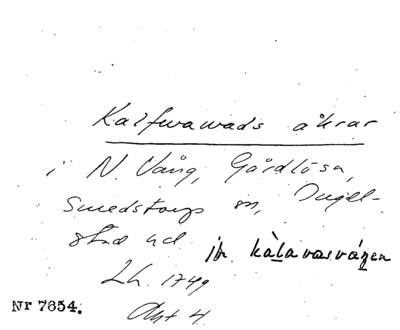 Kalfwawads åkrar
i N. Vång, Gårdlösa,
Smedstorps sn, Ingel-
stad hd jfr kàlavasvágen
Lh. 1749
Akt 4
Nr 7654.